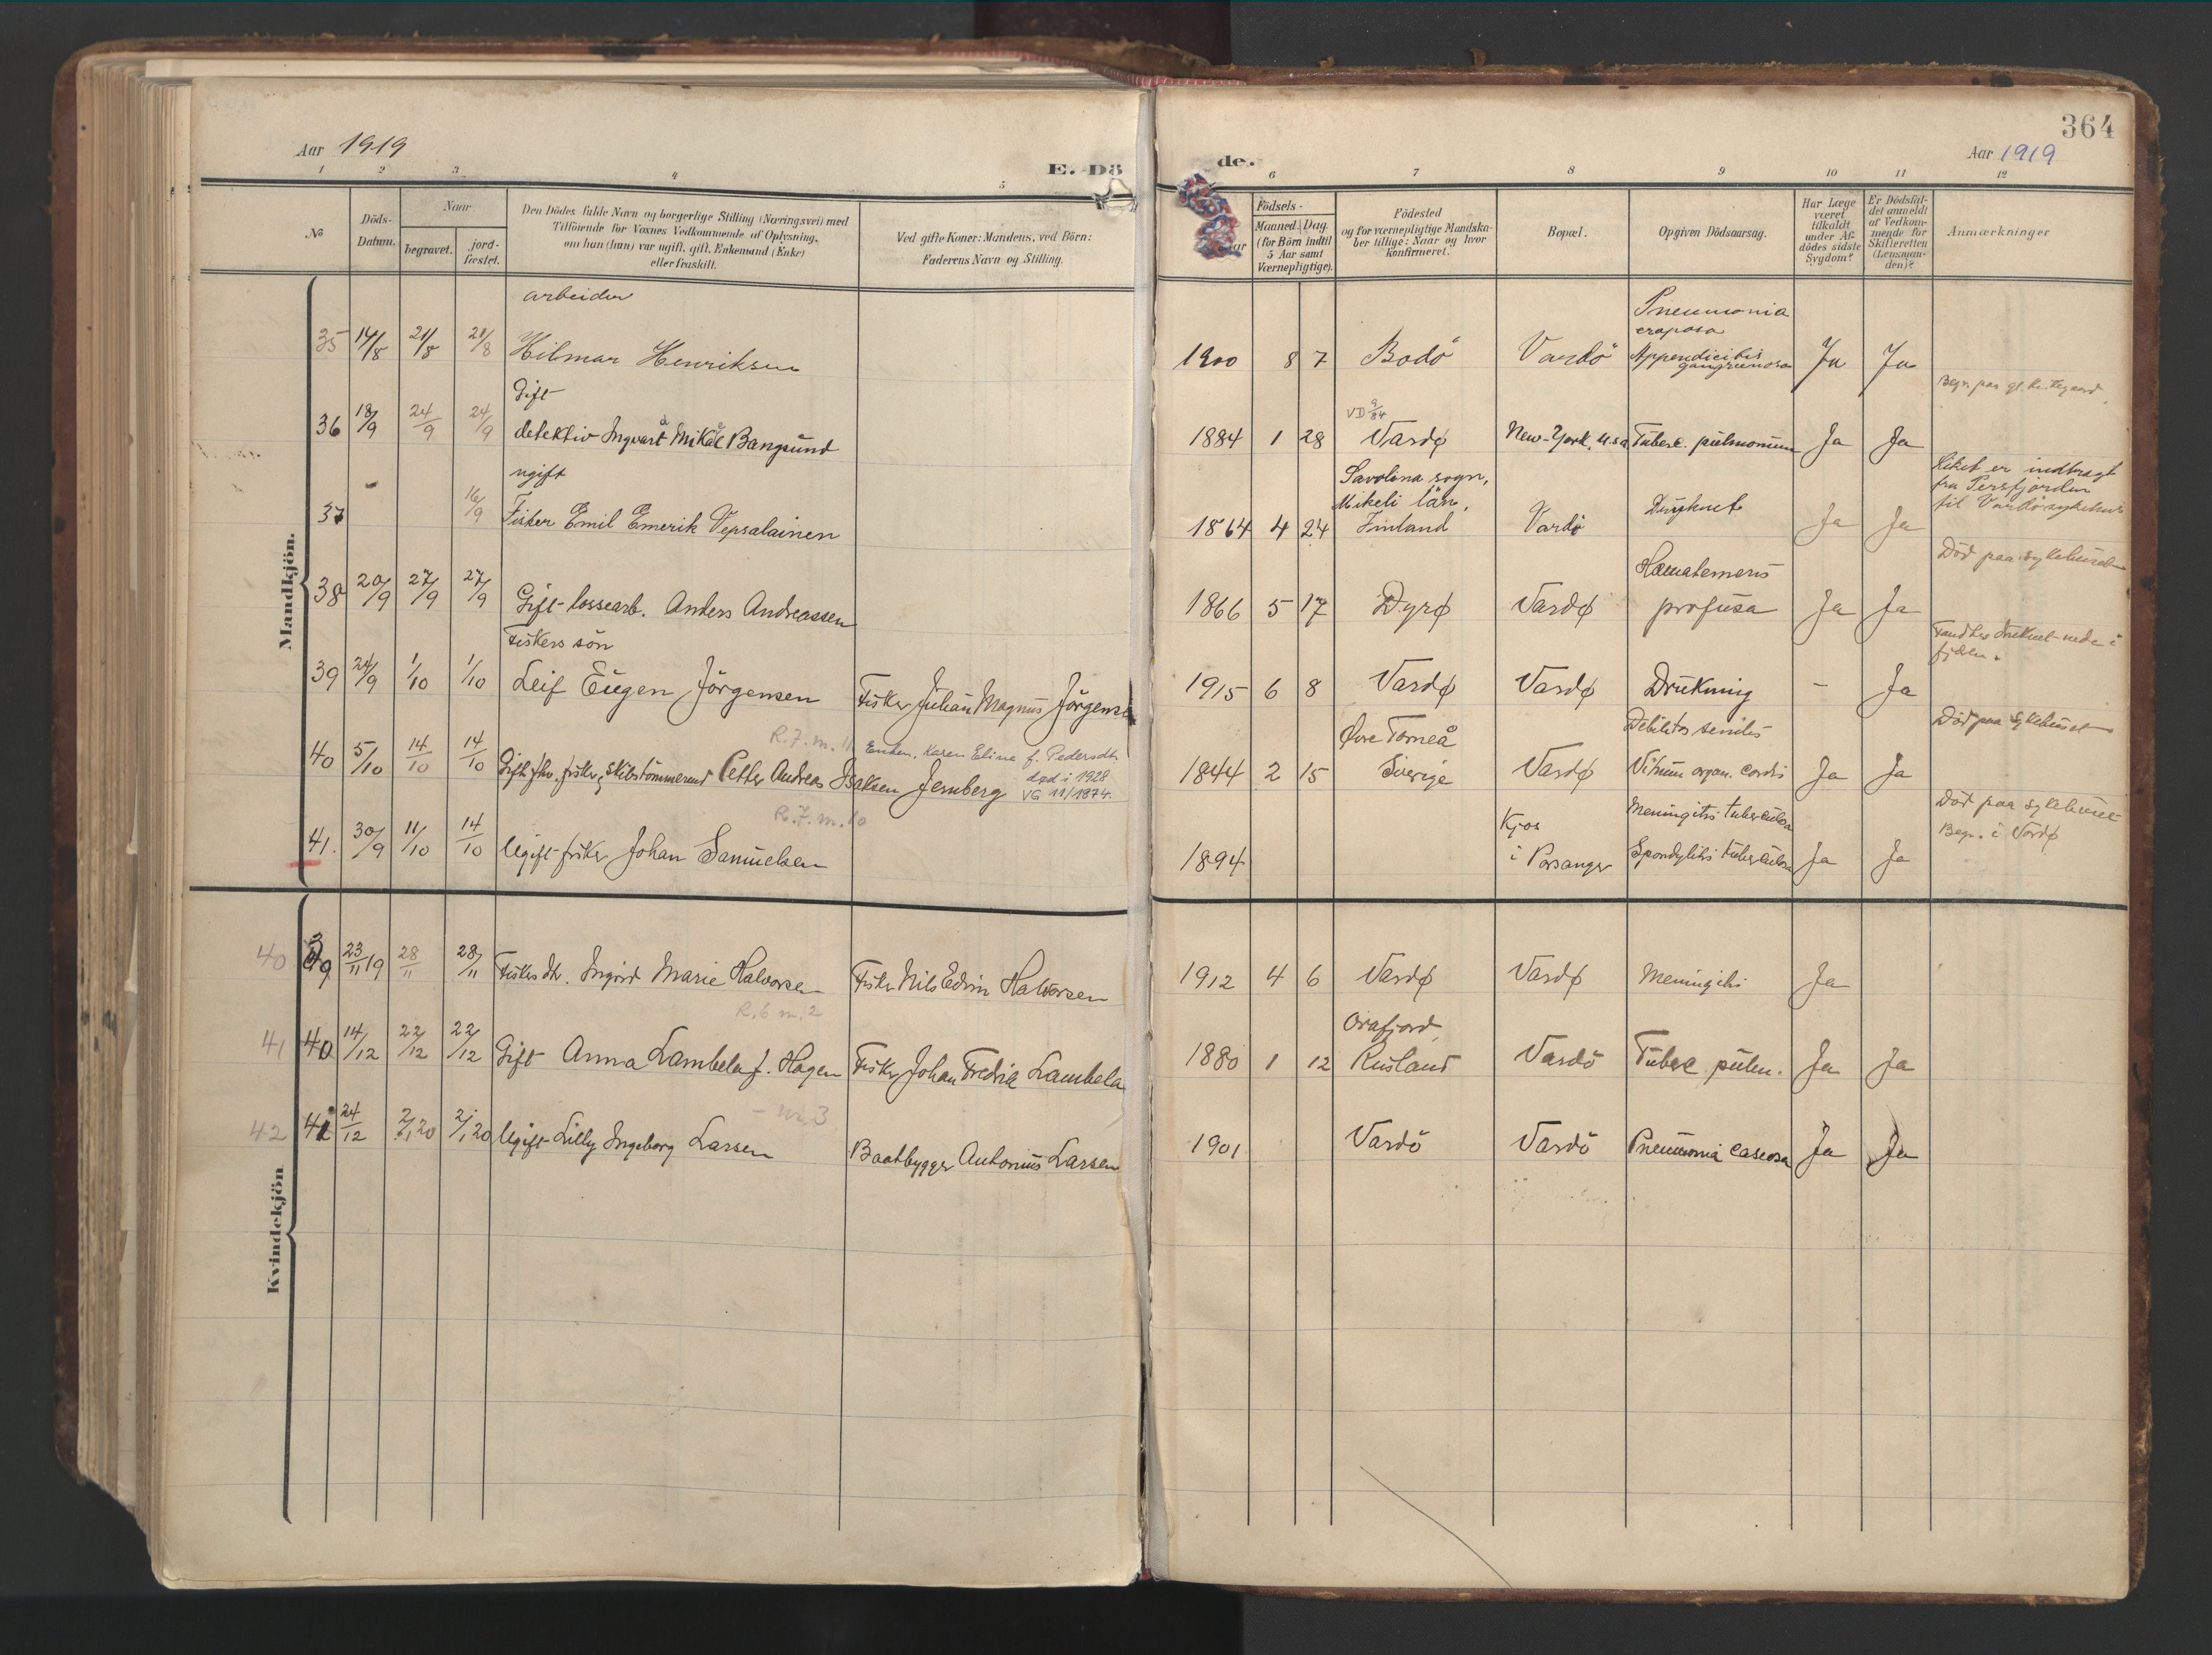 Aar 1919
E. Dö
de.
364
Aar 1919
1 2 3 4 5 6 7 8 9 10 11 12
№
Döds-Datum.
Naar
begravet.
jord-fæstet.
Den Dödes fulde Navn og borgerlige Stilling (Næringsvei) med
Tilföiende for Voxnes Vedkommende af Oplysning,
om han (hun) var ugift, gift, Enkemand (Enke)
eller fraskilt.
Ved gifte Koner: Mandens, ved Börn:
Faderens Navn og Stilling.
Födsels-
Maaned Dag
(for Börn indtil
5 Aar samt
Værnepligtige).
Födested
og for værnepligtige Mandska-
ber tillige: Naar og hvor
konfirmeret.
Bopæl.
Opgiven Dödsaarsag.
Har Læge
været
tilkaldt
under Af-
dödes sidste
Sygdom?
Er Dödsfal-
det anmeldt
af Vedkom-
mende for
Skifteretten
(Lensman-
den)?
Anmærkninger
Mandkjön.
arbeider
35 14/8 21/8 21/8 Hilmar Henriksen 1900 8 7 Bodö Vardö Pneumonia craposa Appendicitis gangrenosa Ja Ja
Begr. paa gl. kirkegaard.
Gift
36 18/9 24/9 24/9 detektiv Ingvart Mikal Bangsund VD 9/84 1884 1 28 Vardø New-York U.s.a Tuberc. pulmonum Ja Ja
ugift
37 16/9 Fisker Emil Emerik Vepsalainen 1864 4 24 Savolina sogn, Mikeli län, Finland Vardö Druknet Ja Ja
Liket er indbragt
fra Persfjorden
til Vardö sykehus
38 20/9 27/9 27/9 Gift lossearb. Anders Andreassen 1866 5 17 Dyrø Vardø Hæmatemesis profusa Ja Ja
Död paa sykehuset
Fiskers sön
39 24/9 1/10 1/10 Leif Eugen Jörgensen Fisker Julian Magnus Jörgensen 1915 6 8 Vardø Vardø Drukning - Ja
Fandtes druknet nede i
fjæren.
R. 7. m. 11
40 5/10 14/10 14/10 Gift fhv. fisker, skibstömmermd Petter Andreas Isaksen Jernberg
Enken, Karen Eline f. Pedersdtr.
død i 1928
VG 11/1874.
1844 2 15 Øvre Torneå Sverige Vardø Debilitas senilis Vitium organ. cordis Ja Ja
Död paa sykehuset
R. 7. m. 10
41. 30/9 11/10 14/10 Ugift fisker Johan Samuelsen 1894 Kjos i Porsanger Meningitis tuberculosa Spondylitis tuberculosa Ja Ja
Död paa sykehuset
Begr. i Vardø
Kvindekjön
40 39 23/11 19 28/11 28/11 Fiskers dtr. Ingrid Marie Halvorsen Fisker Nils Edvin Halvorsen 1912 4 6 Vardø Vardø Meningitis Ja
R. 6 m. 2
41 40 14/12 22/12 22/12 Gift Anna Lambela f. Hagen Fisker Johan Fredrik Lambela 1880 1 12 Orafjord Rusland Vardö Tuberc pulm. Ja Ja
- m. 3
42 41 24/12 2/1 20 2/1 20 Ugift Lilly Ingeborg Larsen Baatbygger Antonius Larsen 1901 Vardö Vardö Pneumonia caseosa Ja Ja